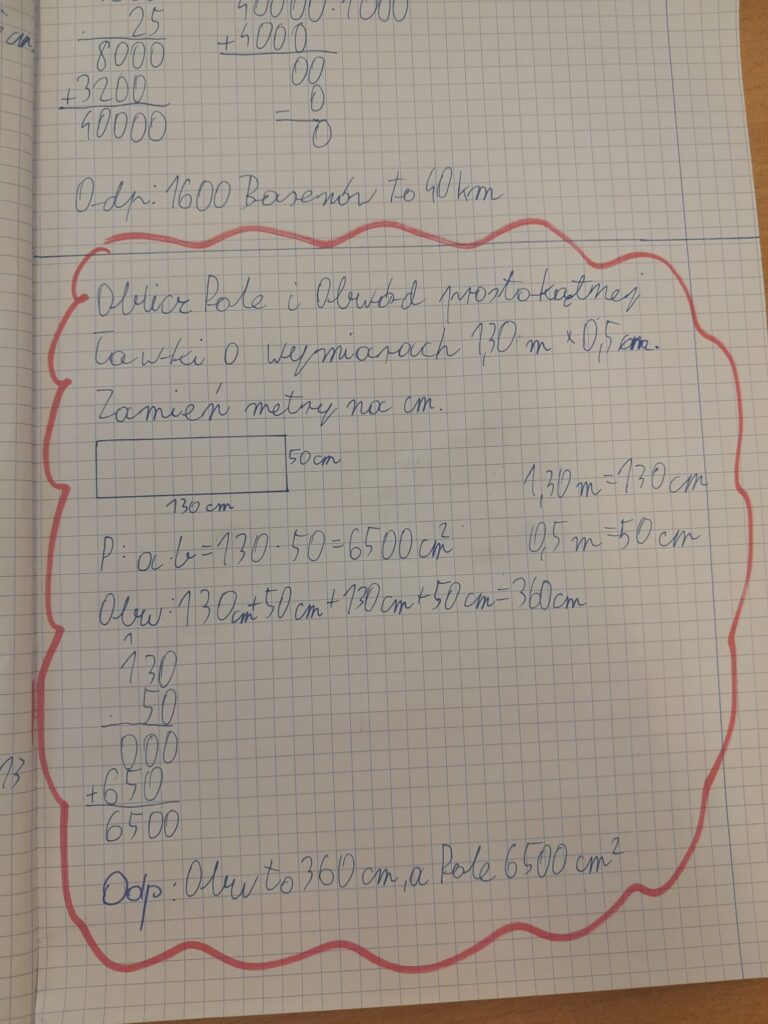 cm.
25
8000
+3200
40000
40000:1000
+4000
00
= 0
0
Odp: 1600 Basenów to 40 km
Oblicz Pole i Obwód prostokątnej
Ławki o wymiarach 1,30 m × 0,5 m.
Zamień metry na cm.
50 cm
130 cm
1,30 m = 130 cm
0,5 m = 50 cm
P: a·b = 130 · 50 = 6500 cm²
Obw: 130cm + 50cm + 130cm + 50cm = 360cm
1
130
· 50
000
+650
6500
13
Odp: Obw to 360 cm, a Pole 6500 cm²